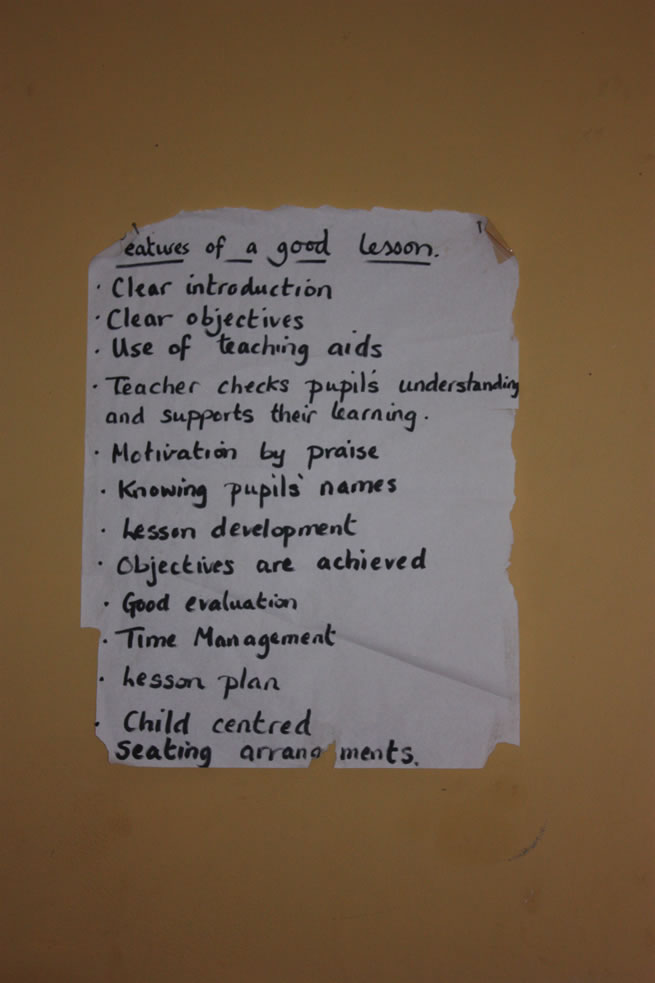 eatures of a good lesson.
· Clear introduction
· Clear objectives
· Use of teaching aids
· Teacher checks pupil's understanding
and supports their learning.
· Motivation by praise
· Knowing pupils' names
· Lesson development
· Objectives are achieved
· Good evaluation
· Time Management
· Lesson plan
· Child centred
seating arran ments.